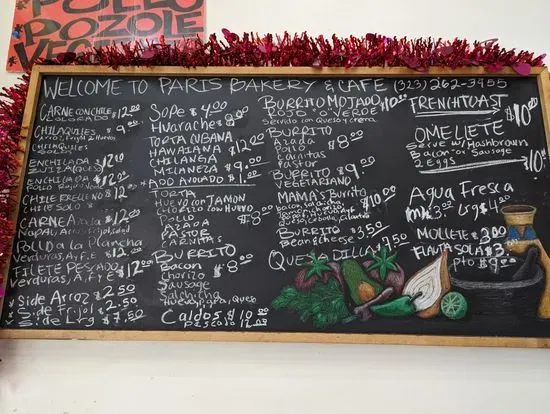 POLLO
POZOLE
VEGE
WELCOME TO PARIS BAKERY & CAFE (323) 262-3455
CARNE CON CHILE $12.00
COLORADO
CHILAQUILES $9.00
Arroz, Frijol y 2 Huevos
CHILAQUILES
ENCHILADA $12.00
SUIZA (QUESO)
ENCHILADA $12.00
POLLO Rojo/Verde
CHILE RELLENO $12.00
CHILE SOLO 8
CARNE Asada $12.00
Nopal, Arroz, Frijol, Salad
POLLO a la Plancha
Verduras, A, F, E $12.00
FILETE PESCADO
Verduras, A, F, E $12.00
Side Arroz $2.50
Side Frijol $2.50
Side Lrg $7.50
Sope $4.00
Huarache $8.00
TORTA CUBANA
HAWAIANA $12.00
CHILANGA
MILANEZA $9.00
ADD AVOCADO $1.00
TORTA
Huevo con JAMON
CHORIZO con HUEVO
POLLO $8.00
AZADA
PASTOR
CARNITAS
BURRITO
Bacon $8.00
Chorizo
Sausage
Salchicha
Huevo, Papa, Queso
Caldos $10.00
Pescado 12.00
BURRITO MOJADO $10.00
ROJO o VERDE
Servido con Queso y crema
BURRITO
Azada
Pollo $8.00
Carnitas
Pastor
BURRITO $9.00
VEGETARIANO
MAMA's Burrito $10.00
BURRITO $3.50
Bean & cheese
QUESADILLA $7.50
FRENCH TOAST $10.00
OMELIETE
Serve w/ Hashbrown
Bacon or Sausage
2 Eggs $10.00
Agua Fresca
Lrg $4.00
MOLLETE $3.00
FLAUTA SOLA $3
Pto $9.00